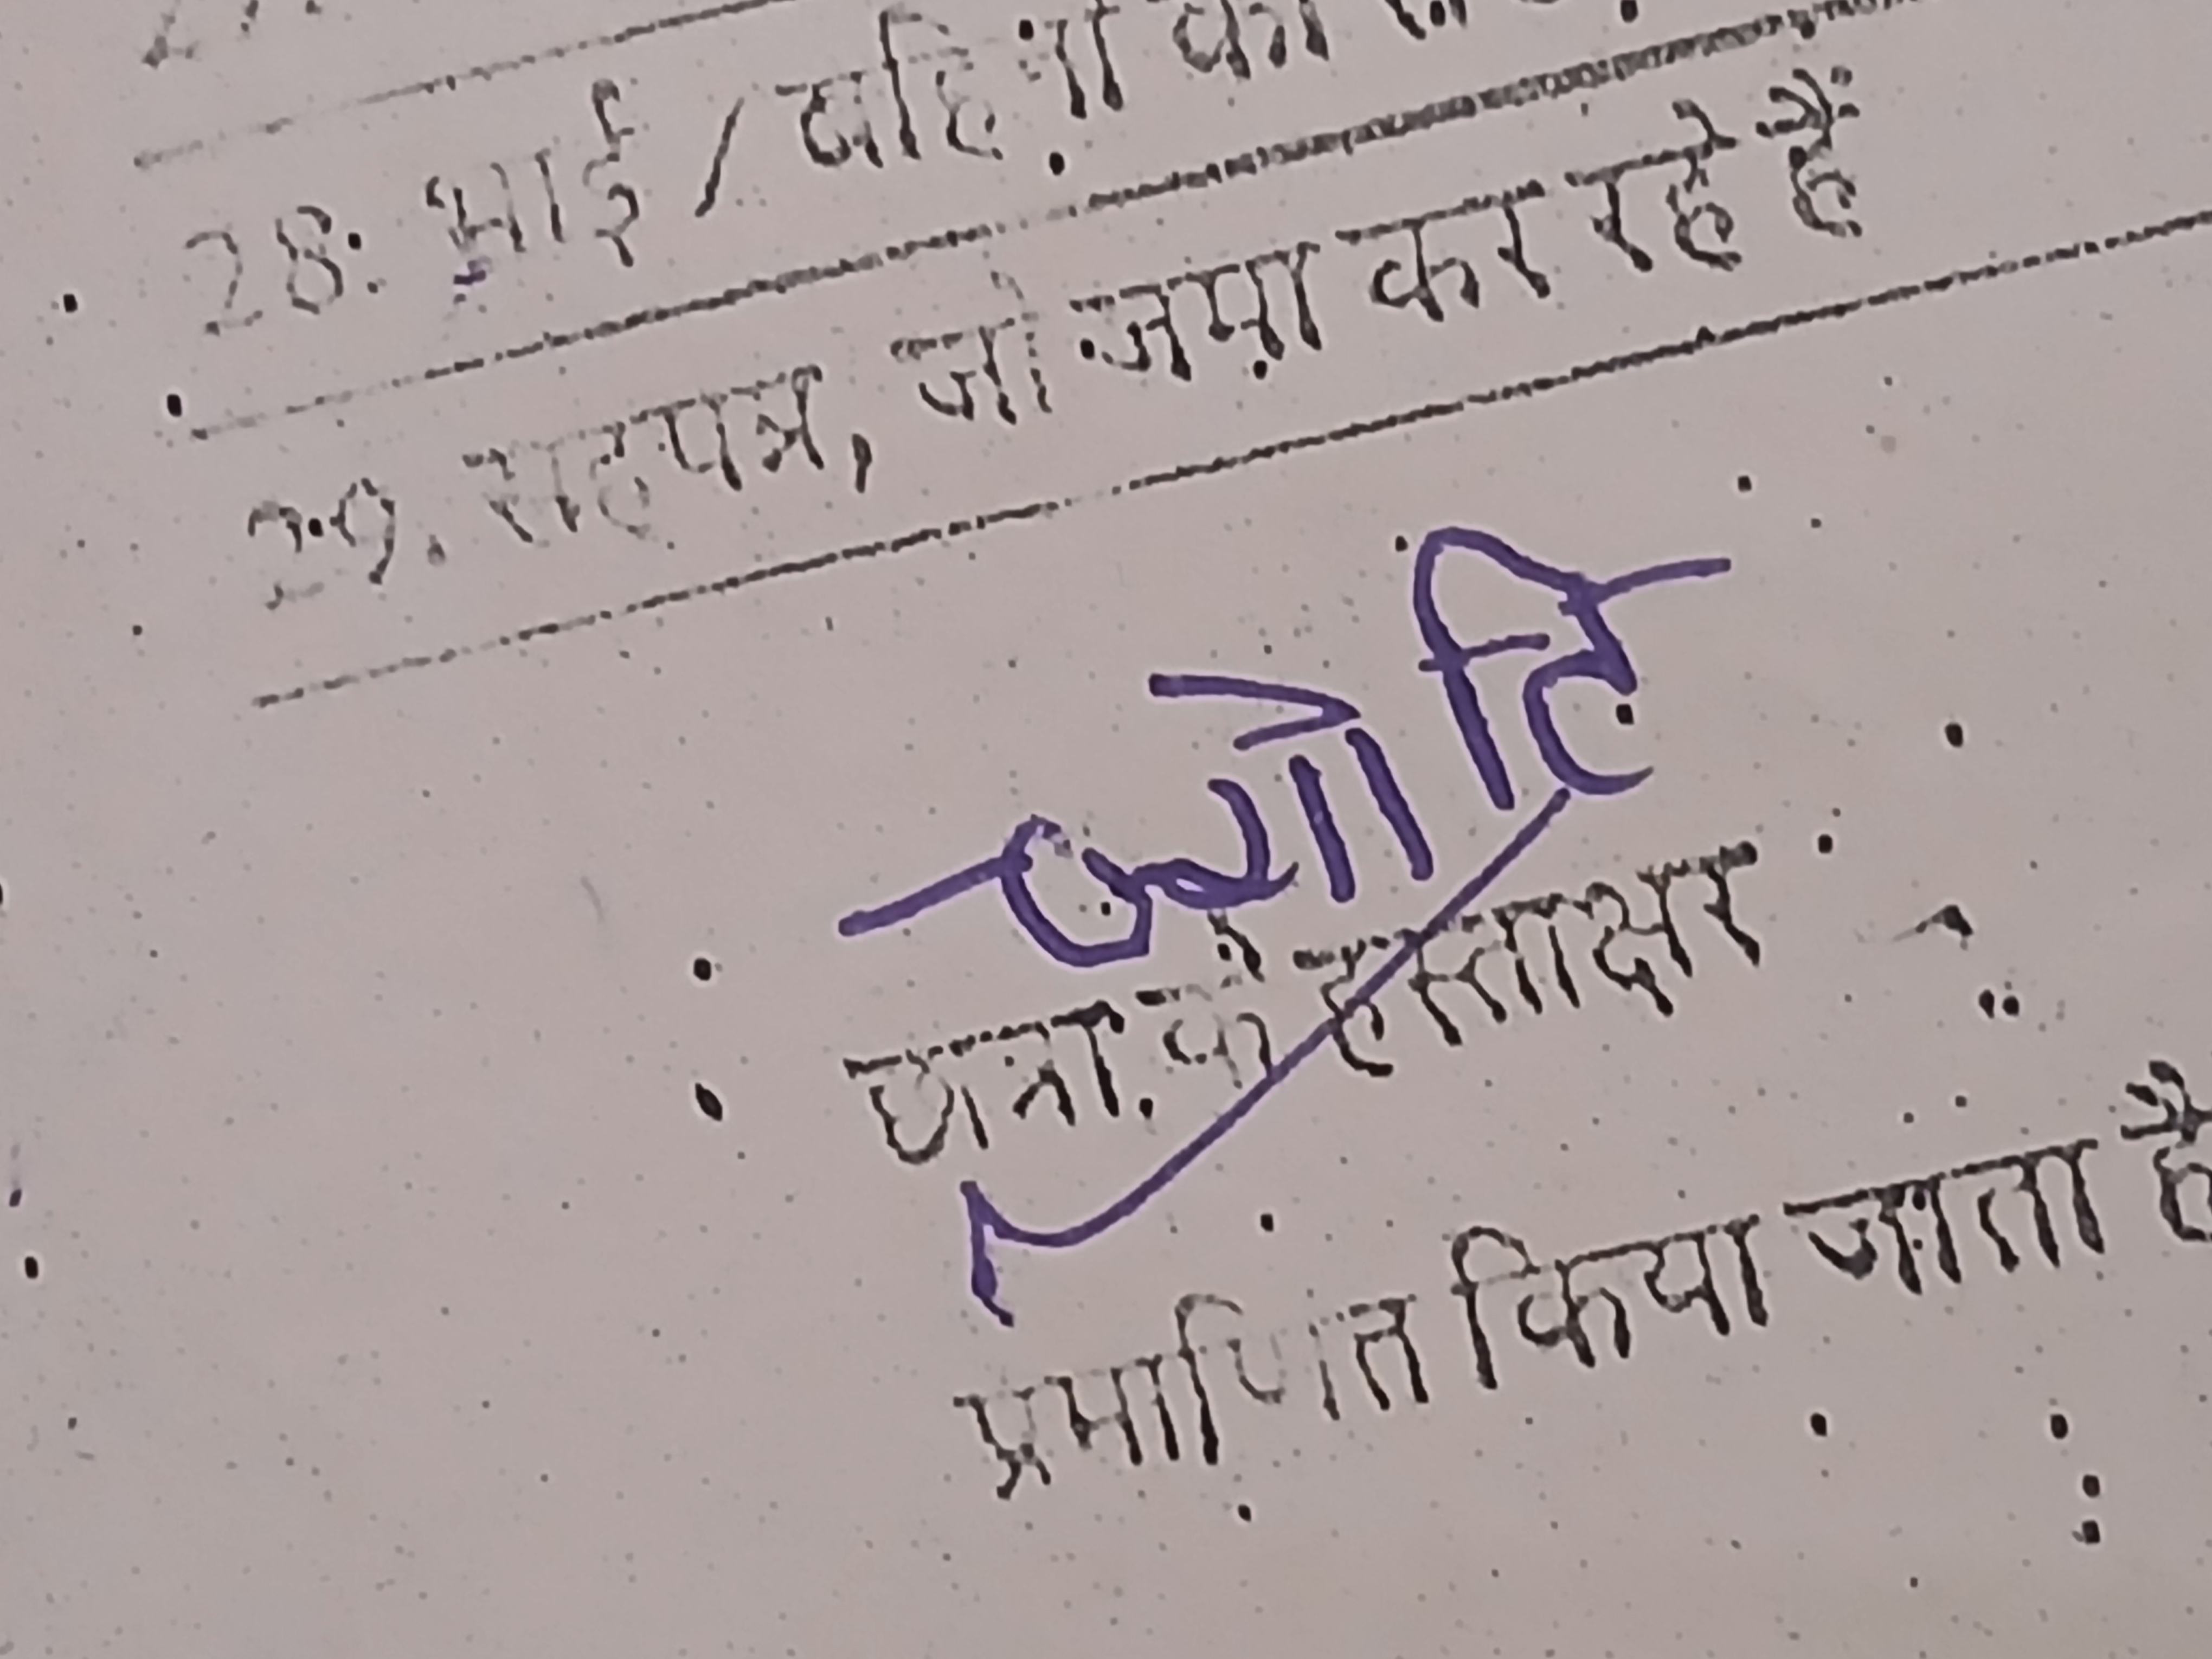 28. भाई/बहिनों की
29. सहपत्र, जो जमा कर रहे हैं
ज्योति
छात्रा के हस्ताक्षर
प्रमाणित किया जाता है